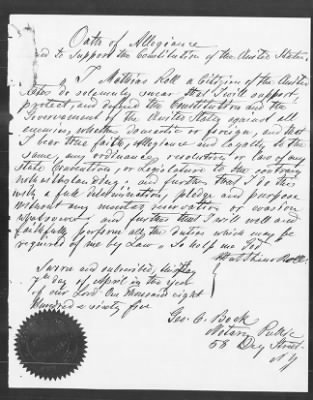 Oath of Allegiance
and to Support the Constitution of the United States,
I Mathias Roll a Citizen of the United
States do solemnly swear that I will support
protect, and defend the Constitution and the
Government of the United States against all
enemies, whether domestic or foreign, and that
I bear true faith, allegiance and loyalty to the
same, any ordinance, resolution or law of any
State Convention or Legislature to the contrary
notwithstanding; and further that I do this
with a full determination, pledge and purpose
without any mental reservation or evasion
whatsoever; and further that I will well and
faithfully perform all the duties which may be
required of me by Law. So help me God.
Matthias Roll
Sworn and subscribed, this
7th day of April in the year
of our Lord One thousand eight
hundred & sixty five
Geo. C. Bock
Notary Public
58 Dey Street
N.Y